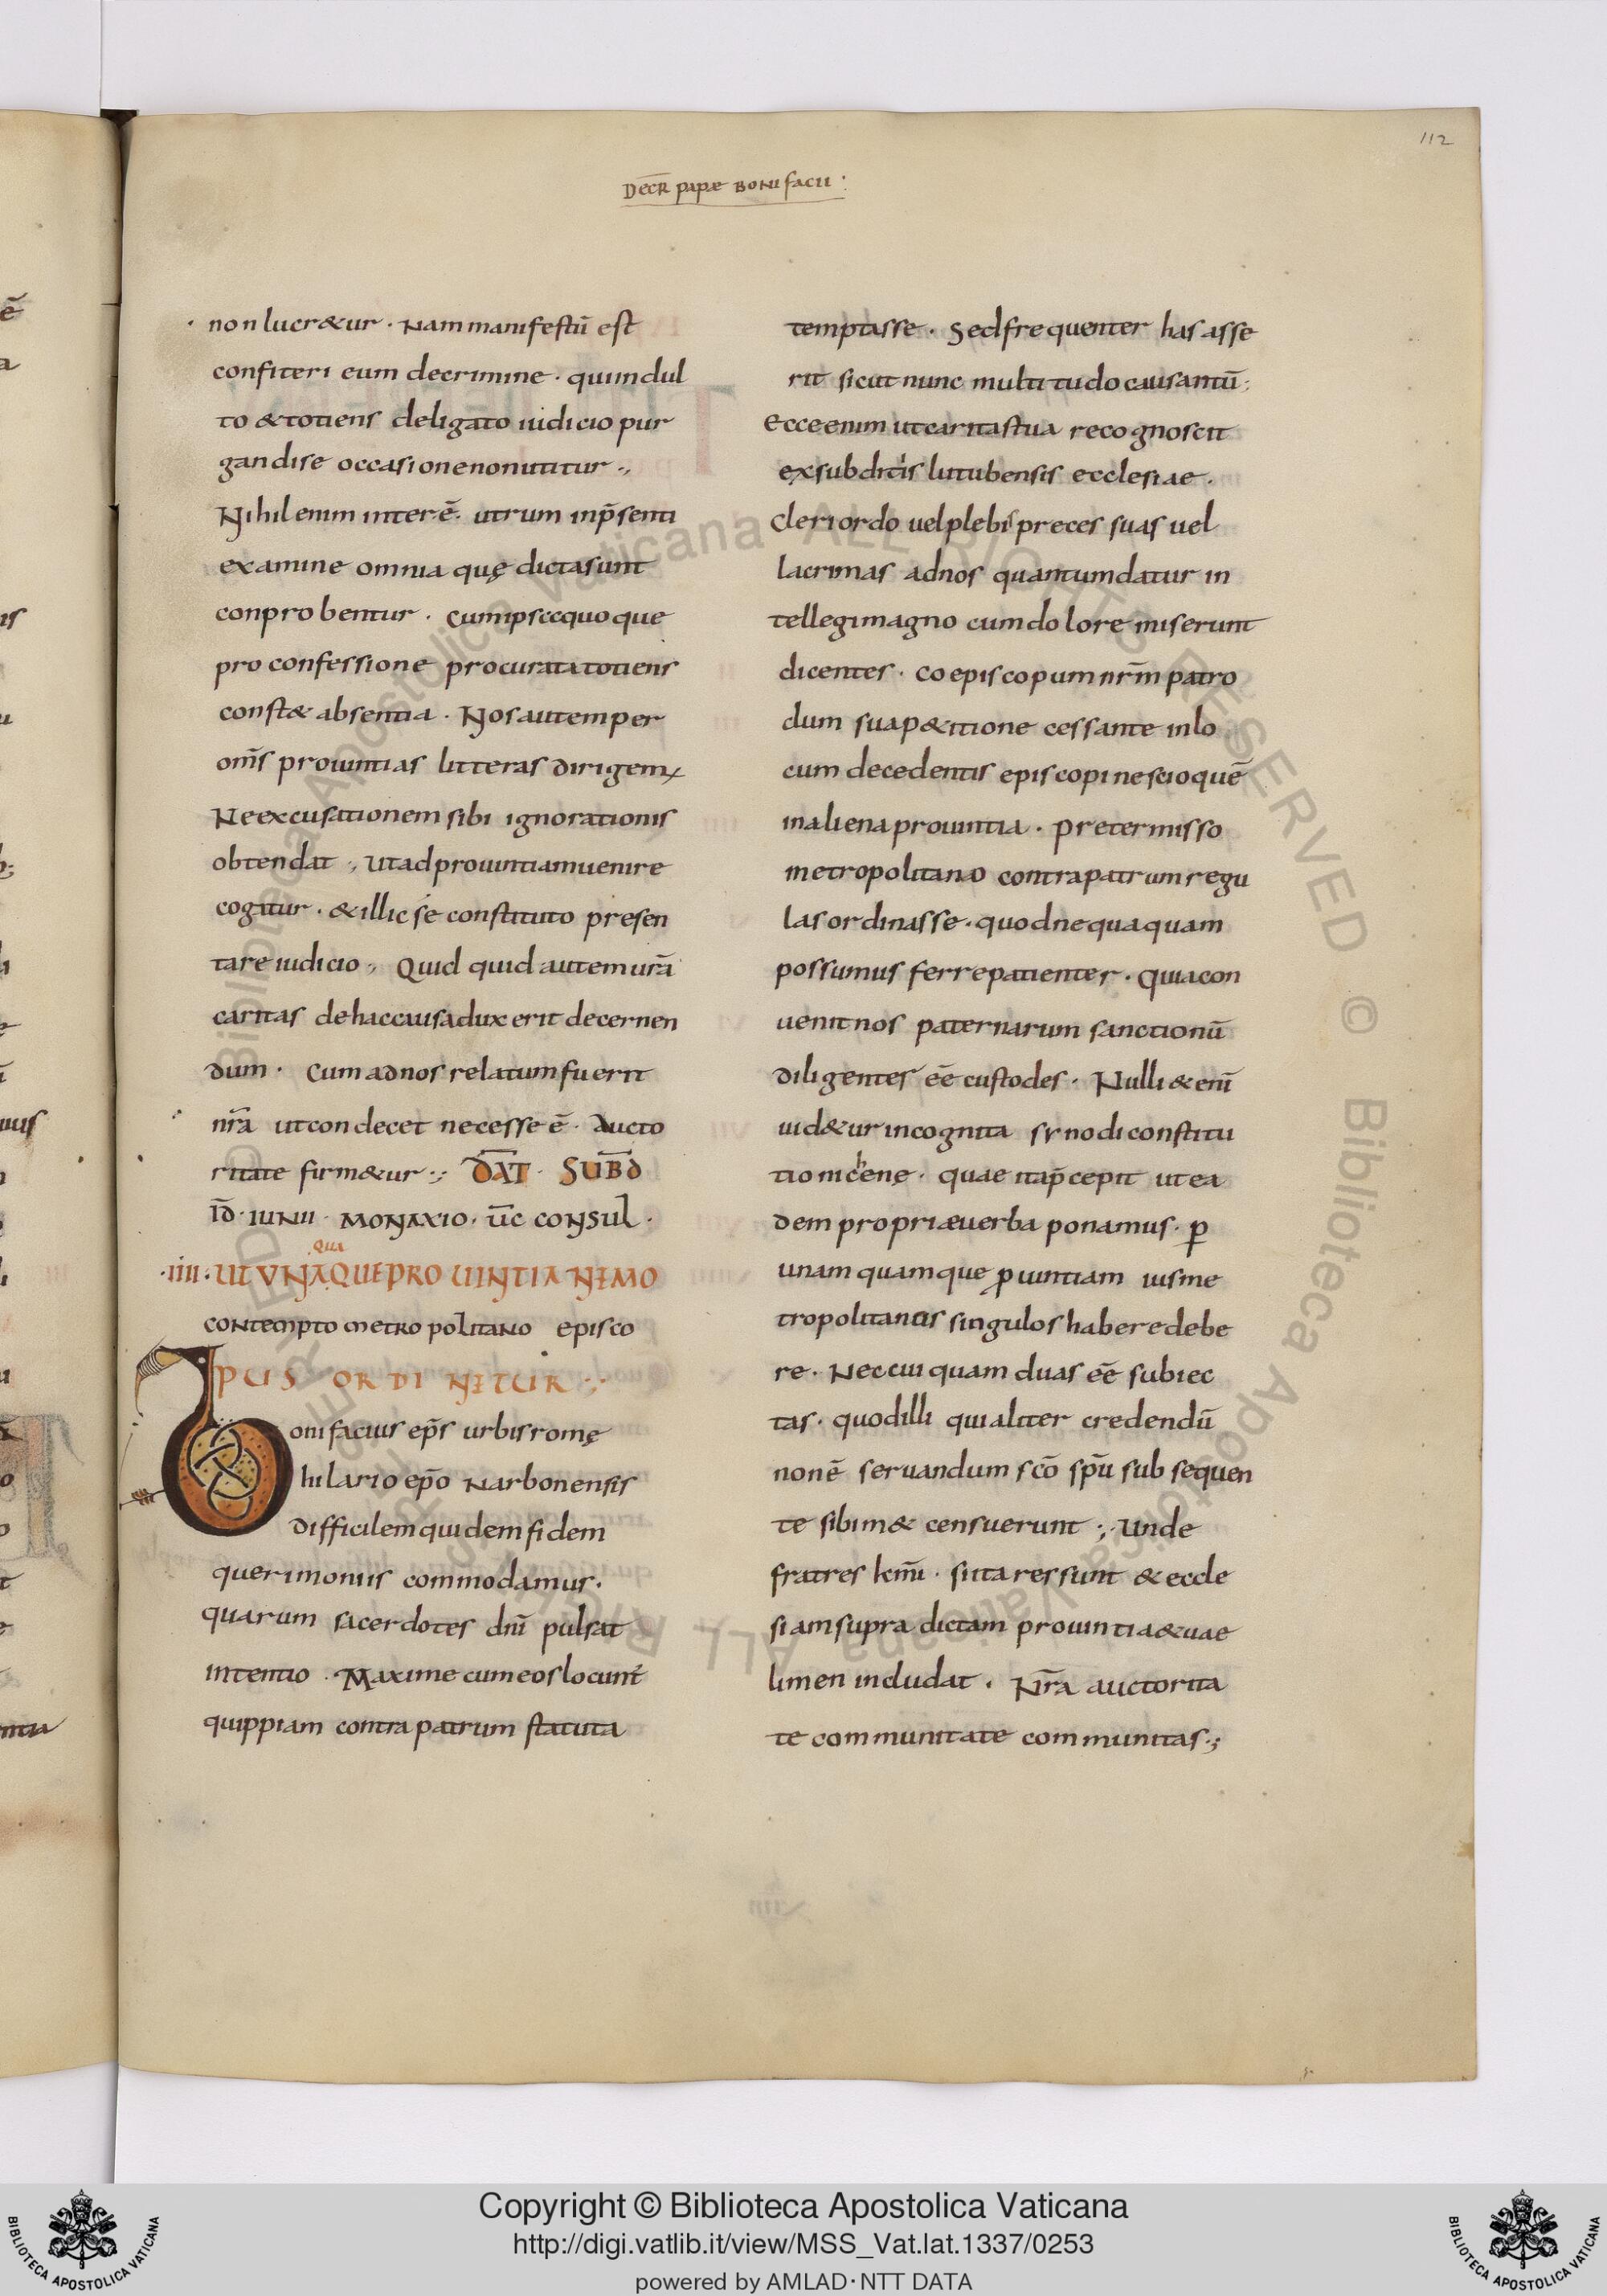 112
Decr̄ papae bonifacii
non lucr&ur · Nam manifestū est
confiteri eum decrimine · quiindul
to & totiens deligato iudicio pur
gandise occasione non utitur ·,
Nihil enim inter.ē. utrum inp̄senti
examine omnia quę dicta sunt
conprobentur · Cumipsccquoque
pro confessione procurata totiens
const& absentia · Nos autem per
om̄s prouintias litteras dirigem
Ne excusationem sibi ignorationis
obtendat ., Utad prouintiam uenire
cogitur · & illic se constituto presen
tare iudicio ., Quid quid autem ur̄a
caritas de hac causa duxerit decernen
dum · Cum ad nos relatum fuerit
nr̄a ut condecet necesse ē · Aucto
ritate firm&ur ·,; DAT̄ · SUB̄D
ID̄ · IUNII · MONAXIO · ūc CONSUL ·
qua
·IIII· UT UNAQUE PROUINTIA NEMO
contempto metropolitano episco
PUS ORDINETUR :·
Bonifacius ep̄s urbis romę
hilario ep̄o Narbonensis
difficilem quidem fidem
querimoniis commodamus ·
quarum sacerdotes dn̄i pulsat
intentio · Maxime cum eos locunt
quippiam contra patrum statuta
temptasse · Sed frequenter has asse
rit sicut nunc multitudo causantū ;
Ecce enim ut caritas tua recognoscit
ex subditis lutubensis ecclesiae ·
Cleri ordo uel plebis preces suas uel
lacrimas ad nos quantum datur in
tellegi magno cum dolore miserunt
dicentes · Coepiscopum nr̄m patro
clum sua p&itione cessante in lo
cum decedentis episcopi nescio quē
in aliena prouintia · Pretermisso
metropolitano contra patrum regu
las ordinasse · quod nequaquam
possumus ferre patienter · Quia con
uenit nos paternarum sanctionū
diligentes eē custodes · Nulli & eni᷄
uid&ur incognita synodi constitu
tio nichenę · quae ita p̄cepit ut ea
dem propriae uerba ponamus · p̱
unam quamque ꝓuintiam iusme
tropolitanus singulos habere debe
re · Nec cuiquam duas eē subiec
tas · quod illi quialiter credendū
non ē seruandum sc̄o sp̄u subsequen
te sibim& censuerunt ·,· Unde
fratres km̄i · si ita res sunt & eccle
siam supra dictam prouintia & uae
limen includat · Nr̄a auctorita
te communitate communitas ·,;
Copyright © Biblioteca Apostolica Vaticana
http://digi.vatlib.it/view/MSS_Vat.lat.1337/0253
powered by AMLAD · NTT DATA